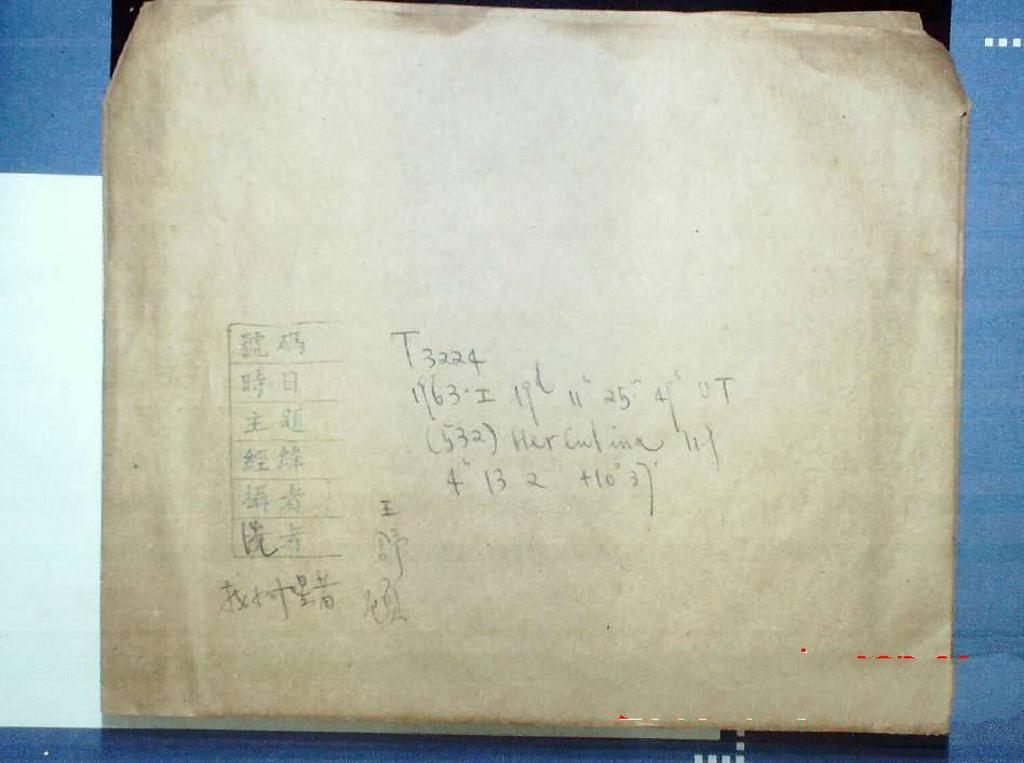 號碼 T3224
時日 1963·I 19d 11h 25m 49s UT
主題 (532) Herculina
經緯 4h 13 2 +10° 37'
攝者 王
洗者 舒
找小行星者 顾